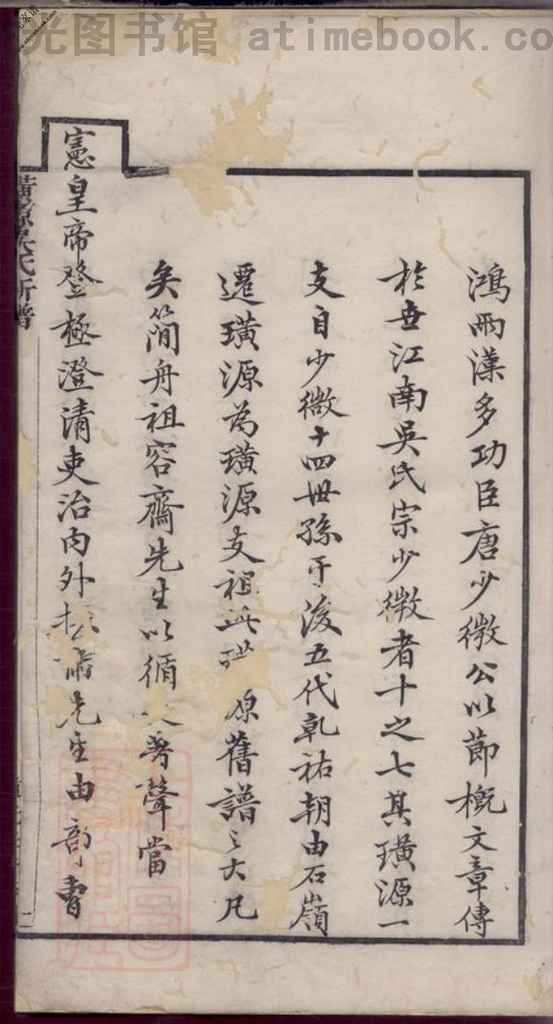 光图书馆 atimebook.co
鴻兩漢多功臣唐少微公以節概文章傳
於世江南吳氏宗少微者十之七其璜源一
支自少微十四世孫于後五代乾祐朝由石嶺
遷璜源為璜源支祖此璜源舊譜之大凡
矣簡舟祖容齋先生以循吏著聲當
憲皇帝登極澄清吏治內外 先生由部曹
璜源吳氏新譜
二